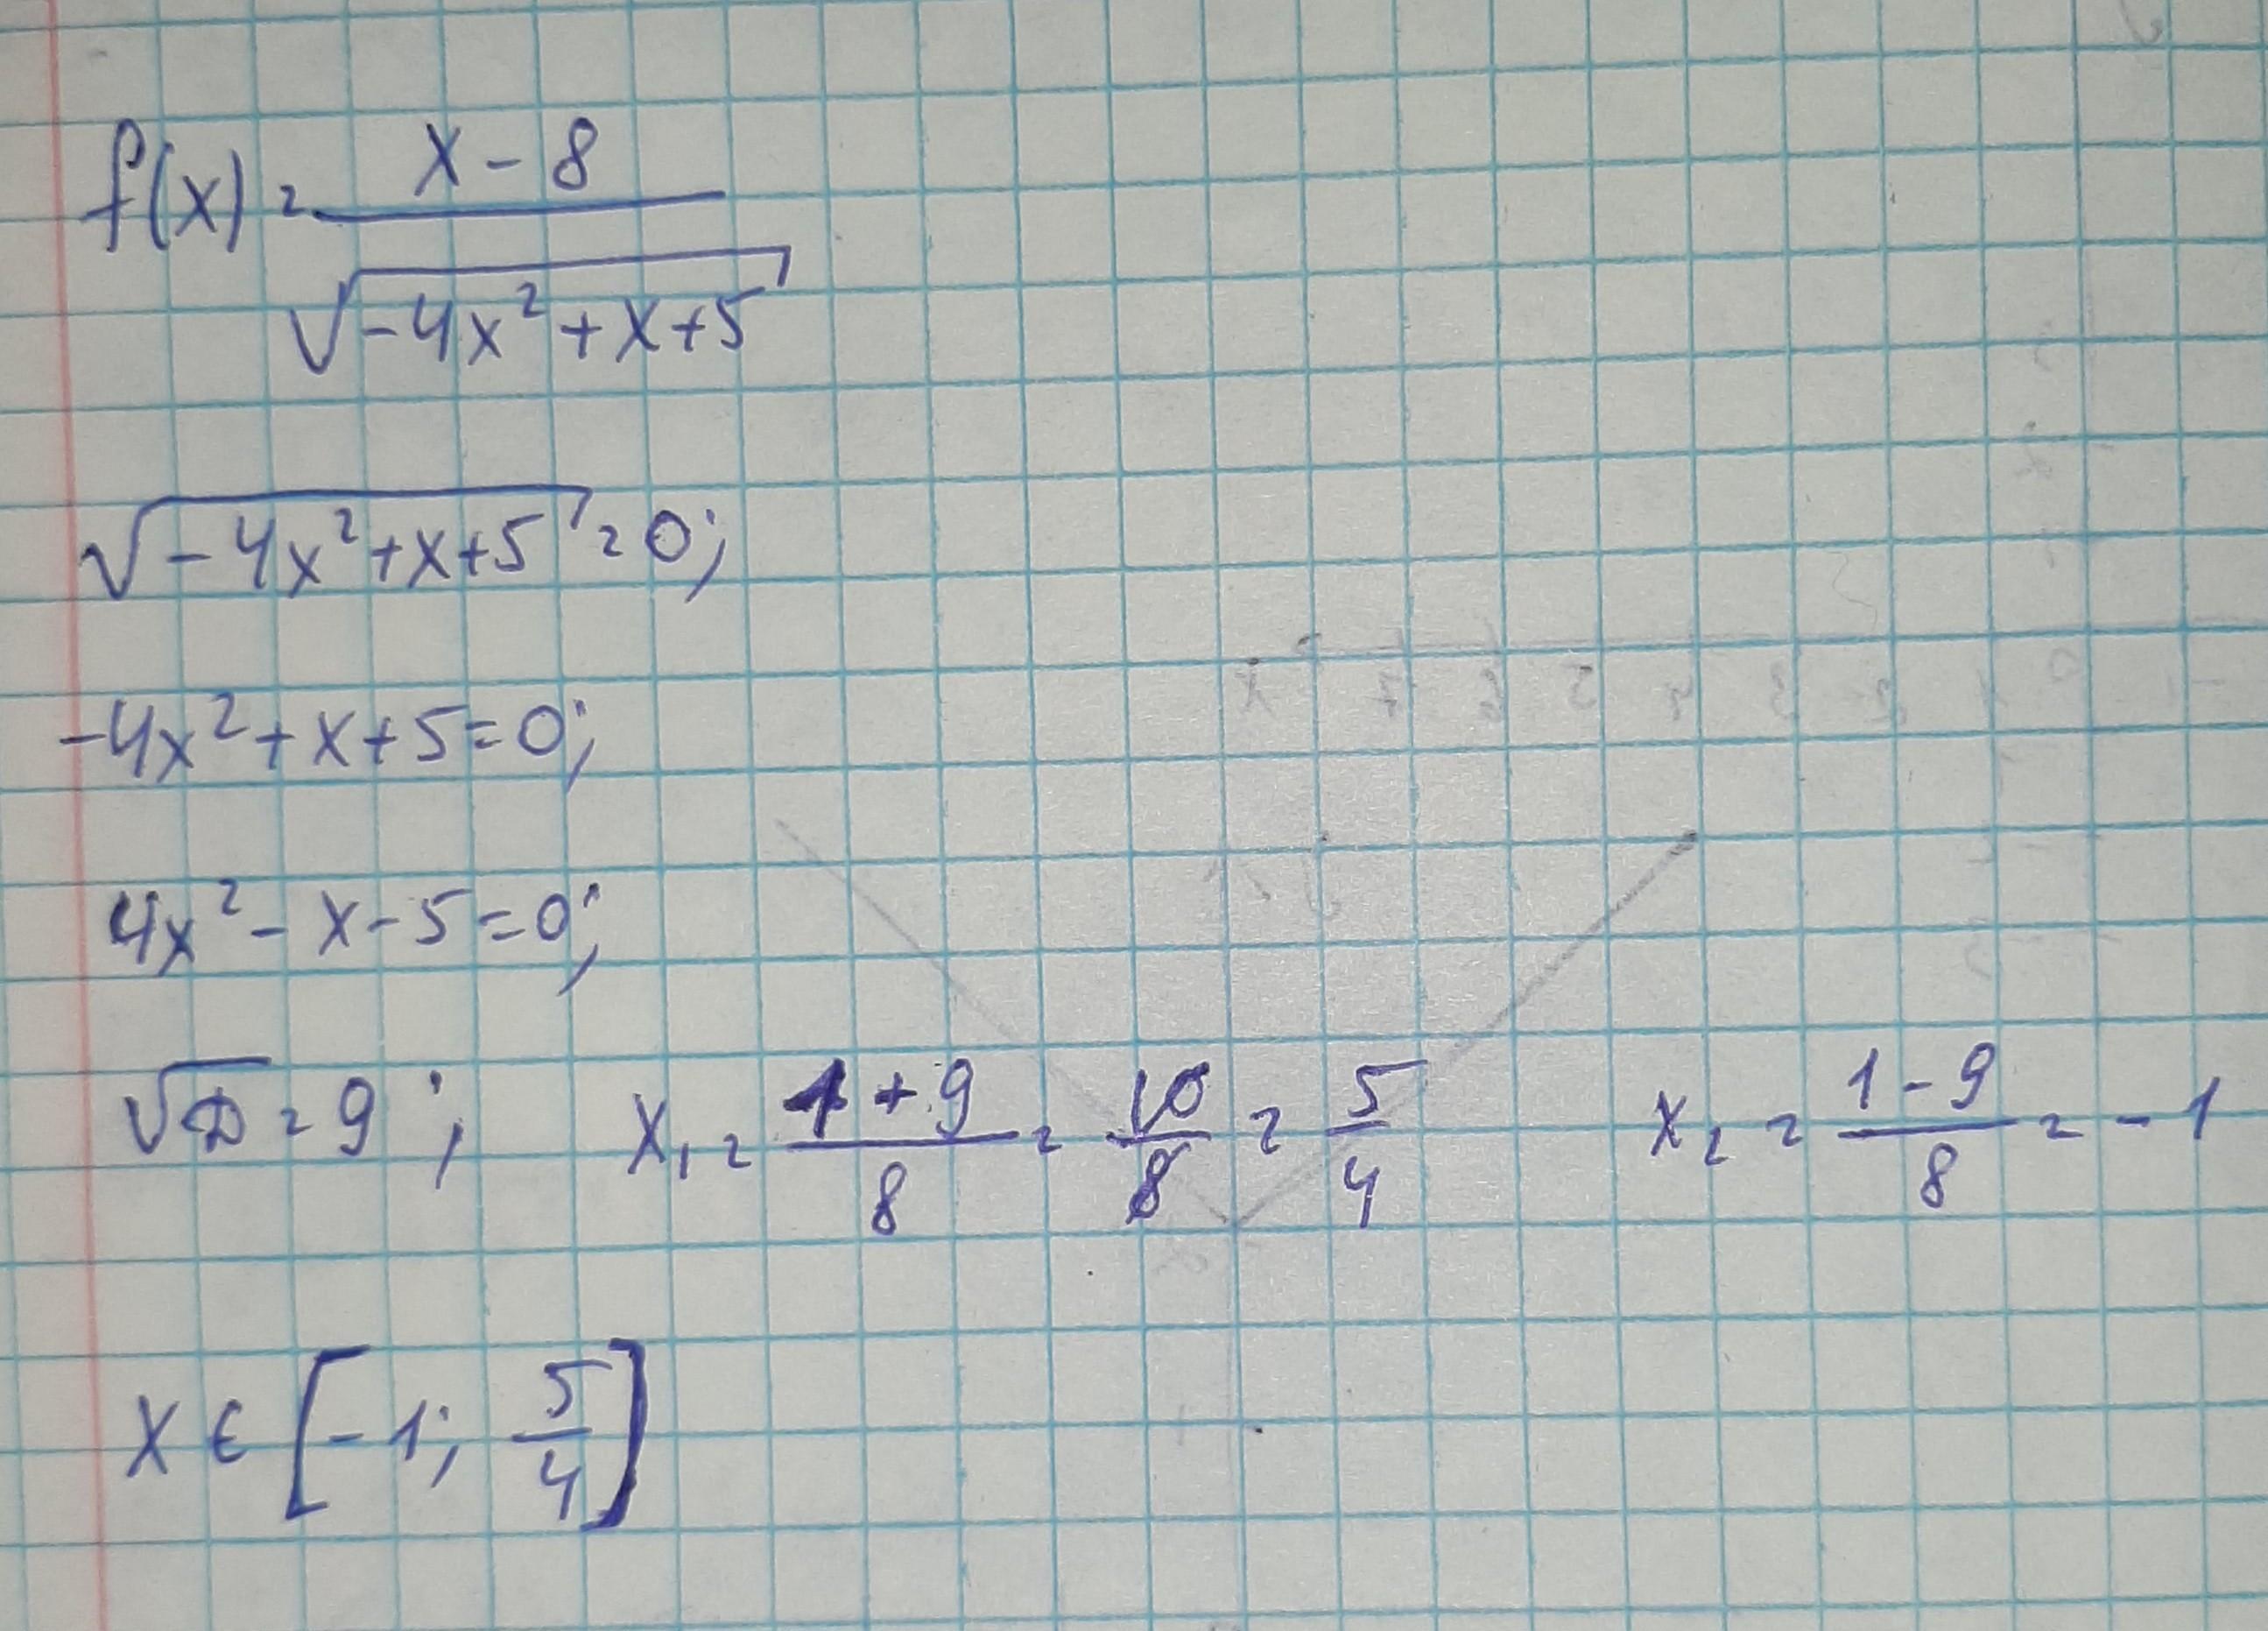 f(x) = x - 8 / √(-4x² + x + 5)
√(-4x² + x + 5) = 0;
-4x² + x + 5 = 0;
4x² - x - 5 = 0;
√D = 9; x₁ = (1 + 9)/8 = 10/8 = 5/4 x₂ = (1 - 9)/8 = -1
x ∈ [-1; 5/4]